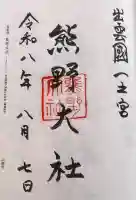 出雲國一之宮
熊野大社
令和八年八月七日